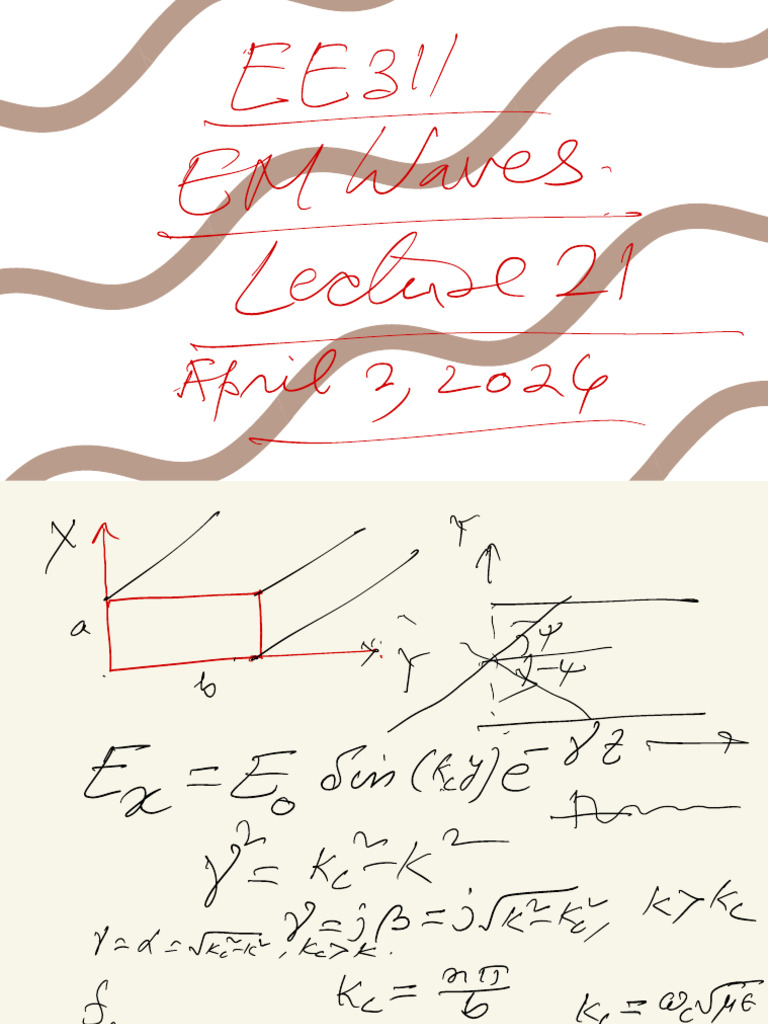 EE311
EM Waves.
Lecture 21
April 3, 2024
X
a
b
Y
Y
ψ
-ψ
E_x = E_0 Sin(k_c y) e^{-γz}
γ^2 = k_c^2 - k^2
γ = jβ = j√(k^2 - k_c^2), k > k_c
γ = α = √(k_c^2 - k^2), k_c > k.
k_c = nπ/b
k_c = ω_c√με